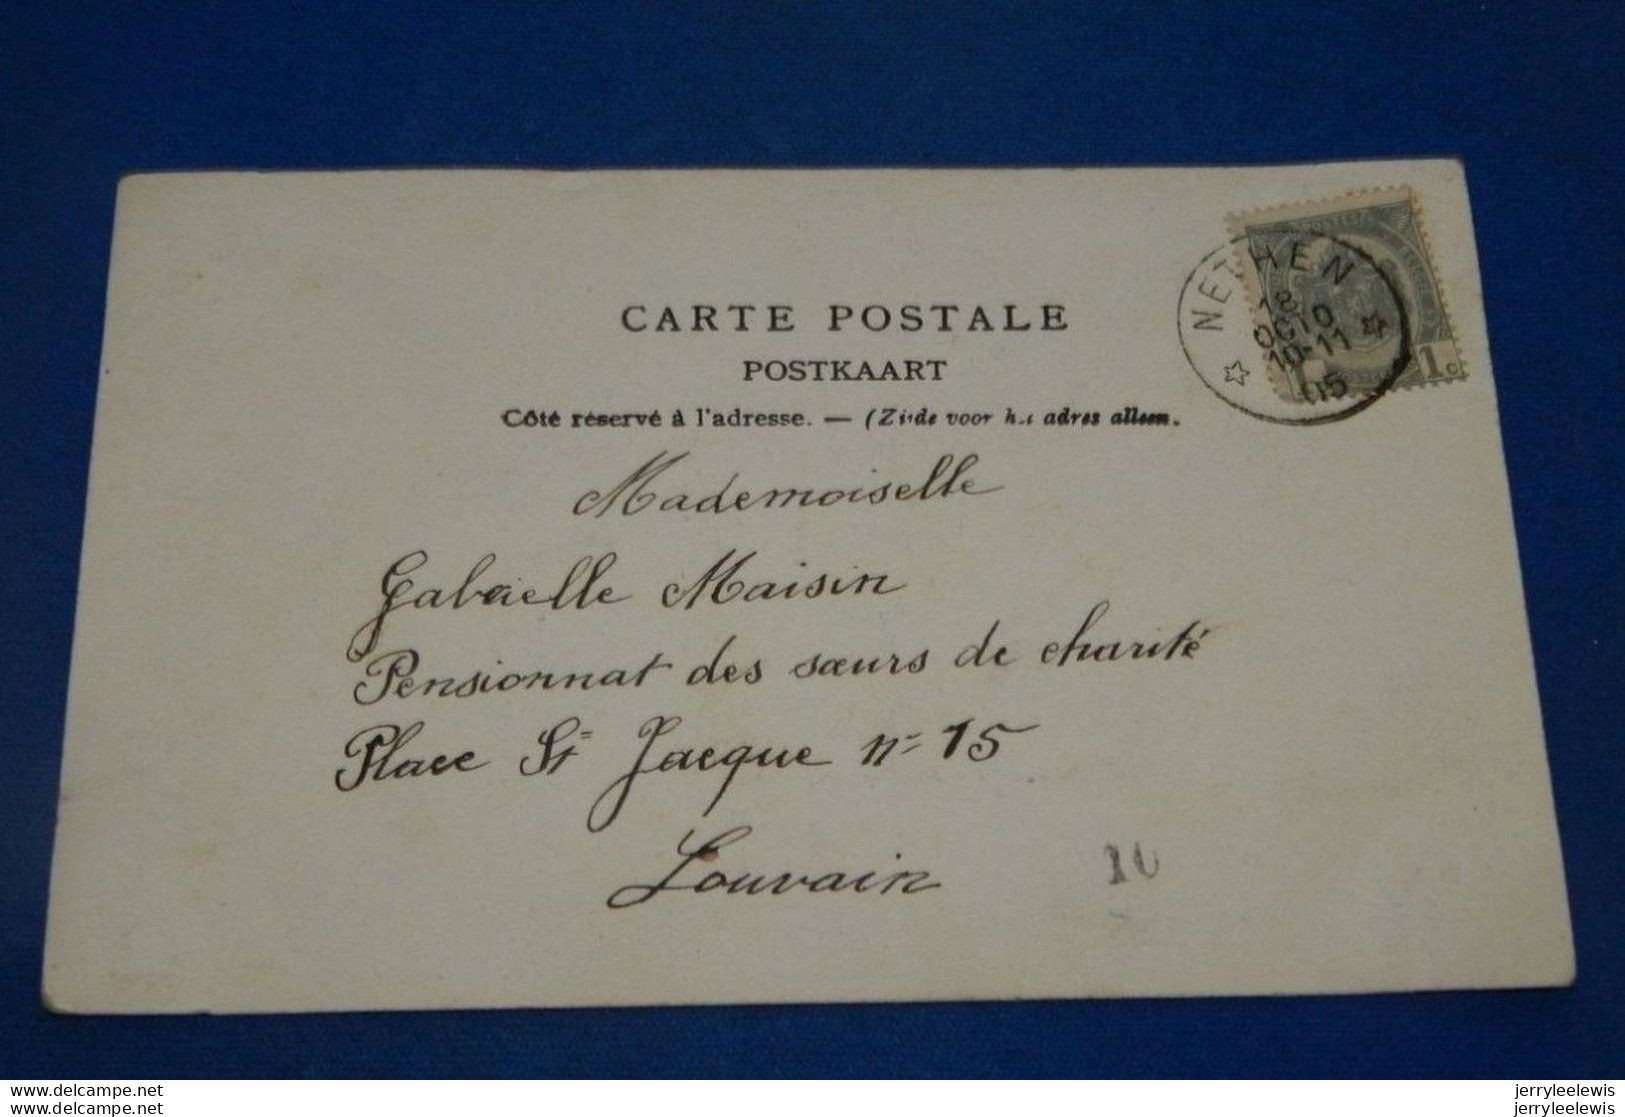 CARTE POSTALE
POSTKAART
Côté réservé à l'adresse. — (Zijde voor het adres alleen.
NETHEN
18
OCTO
10-11
05
1c
Mademoiselle
Gabrielle Maisin
Pensionnat des sœurs de charité
Place St Jacque n= 15
Louvain
10
www.delcampe.net
www.delcampe.net
jerryleelewis
jerryleelewis